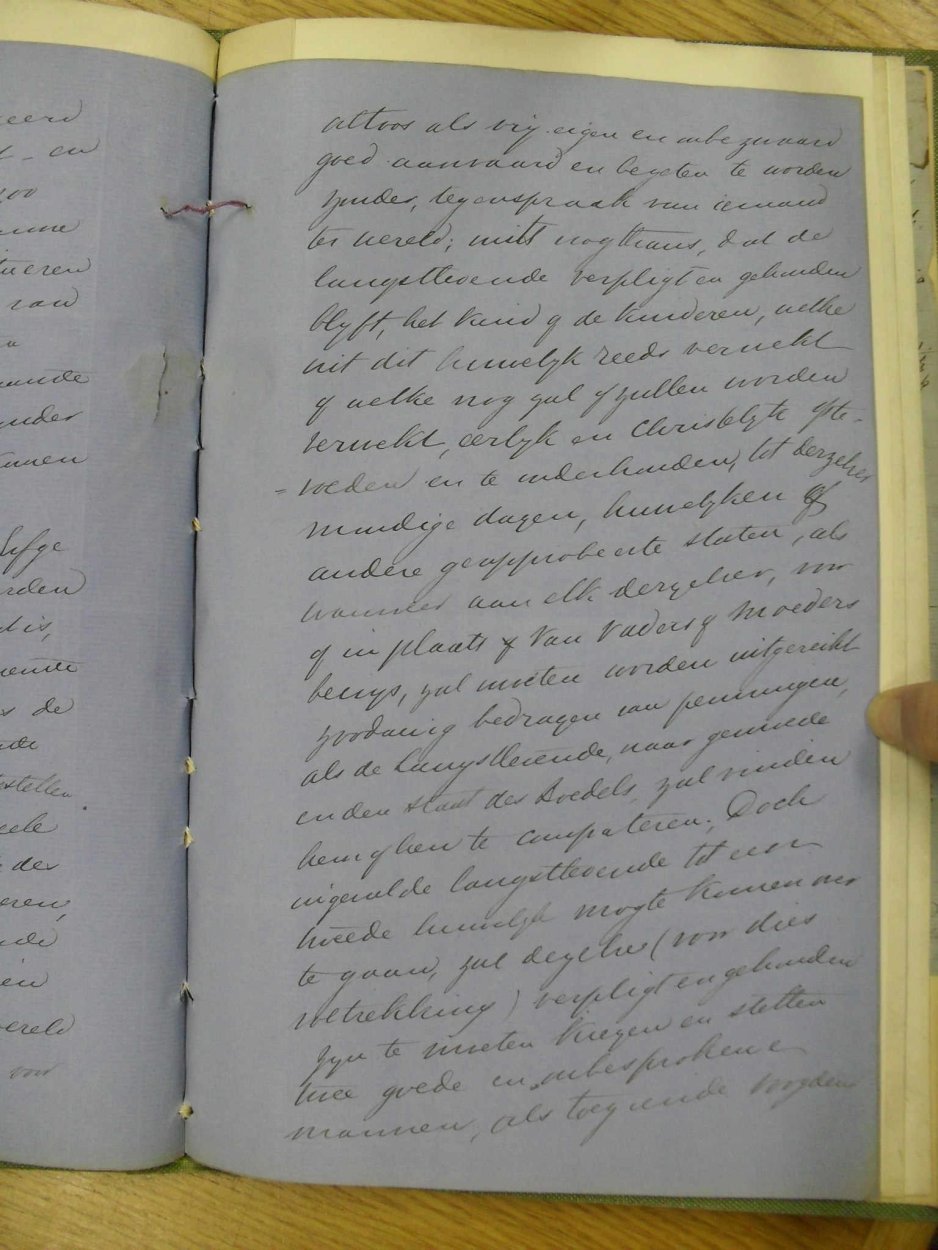 eerd
en
van
aande
onder
rden
dis,
de
stellen
der
wereld
voor
altoos als vrij eigen en onbezwaard
goed aanvaard en bezeten te worden
zonder, tegenspraak van iemand
ter wereld; mits nogthans, dat de
langstlevende verpligt en gehouden
blyft, het kind of de kinderen, welke
uit dit huwelyk reeds verwekt
of welke nog zal of zullen worden
verwekt, eerlyk en Christelyk opte-
= voeden en te onderhouden, tot derzelver
mundige dagen, huwelyken of
andere geapprobeerte staten, als
wanneer aan elk derzelver, voor
of in plaats van Vaders of Moeders
bewys, zal moeten worden uitgereikt
zoodanig bedragen van penningen,
als de Langstlevende, naar gemoede
en den staat des Boedels, zal vinden
hem of hen te competeren; Doch
ingevalde langstlevende tot een
tweede huwelyk mogte komen over
te gaan, zal dezelve (voor dies
voltrekking) verpligt en gehouden
zyn te moeten kiezen en stellen
twee goede en onbesprokene
mannen, als toeziende voogden